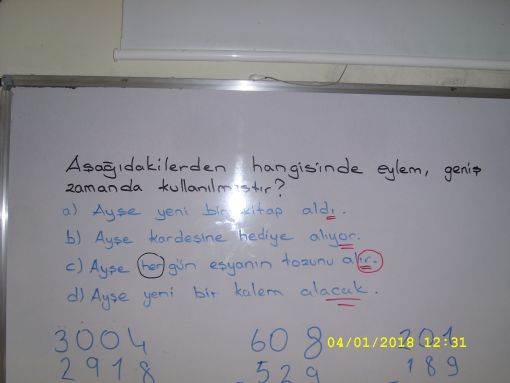 Aşağıdakilerden hangisinde eylem, geniş
zamanda kullanılmıştır?
a) Ayşe yeni bir kitap aldı.
b) Ayşe kardeşine hediye alıyor.
c) Ayşe her gün eşyanın tozunu alır.
d) Ayşe yeni bir kalem alacak.
3004 608 201
2918 529 189
04/01/2018 12:31